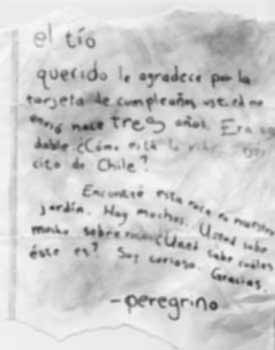 el tío
querido le agradece por la
tarjeta de cumpleaños usted me
envió hace tres años. Era
dable ¿Cómo está la
cito de Chile?
Encontré esta roca en nuestro
jardín. Hay muchos. Usted sabe
mucho sobre rocas ¿Usted sabe cuáles
éste es? Soy curioso. Gracias.
-peregrino